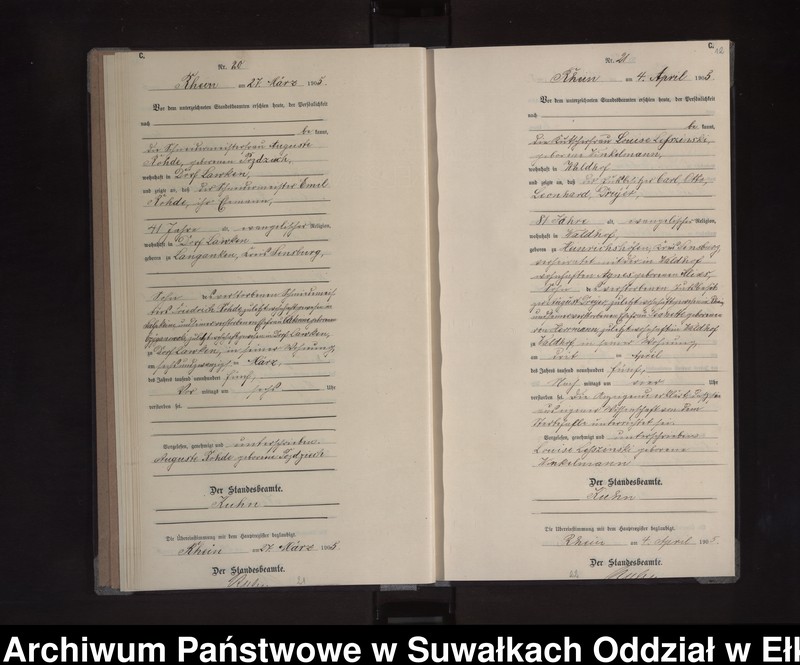 C.
Nr. 20
Rhein am 27. März 1905.
Vor dem unterzeichneten Standesbeamten erschien heute, der Persönlichkeit
nach
be kannt,
die Schneidermeisterfrau Auguste
Rohde, geborene
wohnhaft in Dorf Lawken,
und zeigte an, daß der Schneidermeister Emil
Rohde, ihr Ehemann,
41 Jahre a evangelischer Religion,
wohnhaft in Dorf Lawken
geboren zu Langanken, Kreis Sensburg,
Sohn de verstorbenen Schneidermeis
Friedrich Rohde, zuletzt
zuletzt Dorf Lawken,
zu Dorf Lawken, in seiner Wohnung,
am sechsundzwanzigsten März,
des Jahres tausend neunhundert fünf,
Vor mittags um sechs Uhr
verstorben sei.
Vorgelesen, genehmigt und unterschrieben.
Auguste Rohde geborene
Der Standesbeamte.
Kuhn
Die Übereinstimmung mit dem Hauptregister beglaubigt.
Rhein am 27. März 1905
Der Standesbeamte.
Kuhn
21
C.
Nr. 21
Rhein am 4. April 1905
Vor dem unterzeichneten Standesbeamten erschien heute, der Persönlichkeit
nach
be kannt,
die Louise
geborene Winkelmann,
wohnhaft in Waldhof,
und zeigte an, daß der Carl, Otto,
Leonhard, Dreyer,
81 Jahre a evangelischer Religion,
wohnhaft in Waldhof,
geboren zu Heinrichshöfen, Kreis Sensburg,
verheiratet mit der in Waldhof
wohnhaften Agnes geborenen
Sohn de verstorbenen
August Dreyer zuletzt
geborenen
von Herrmann, zuletzt wohnhaft in Waldhof
zu Waldhof in seiner Wohnung
am drit en April
des Jahres tausend neunhundert fünf,
Nach mittags um vier Uhr
verstorben sei. Die Anzeigende erklärte, daß sie
aus eigener Wissenschaft von dem
Sterbefalle unterrichtet sei.
Vorgelesen, genehmigt und unterschrieben
Louise geborene
Winkelmann
Der Standesbeamte.
Kuhn
Die Übereinstimmung mit dem Hauptregister beglaubigt.
Rhein am 4. April 1905.
Der Standesbeamte.
Kuhn
22
Archiwum Państwowe w Suwałkach Oddział w Ełk